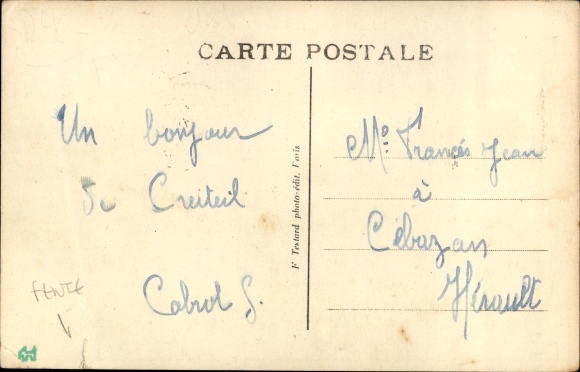 CARTE POSTALE
Un bonjour
de Creiteil
Cabrol S.
F Testard photo-édit. Paris
Mo: Francés Jean
à
Cébazan
Hérault
FENTE